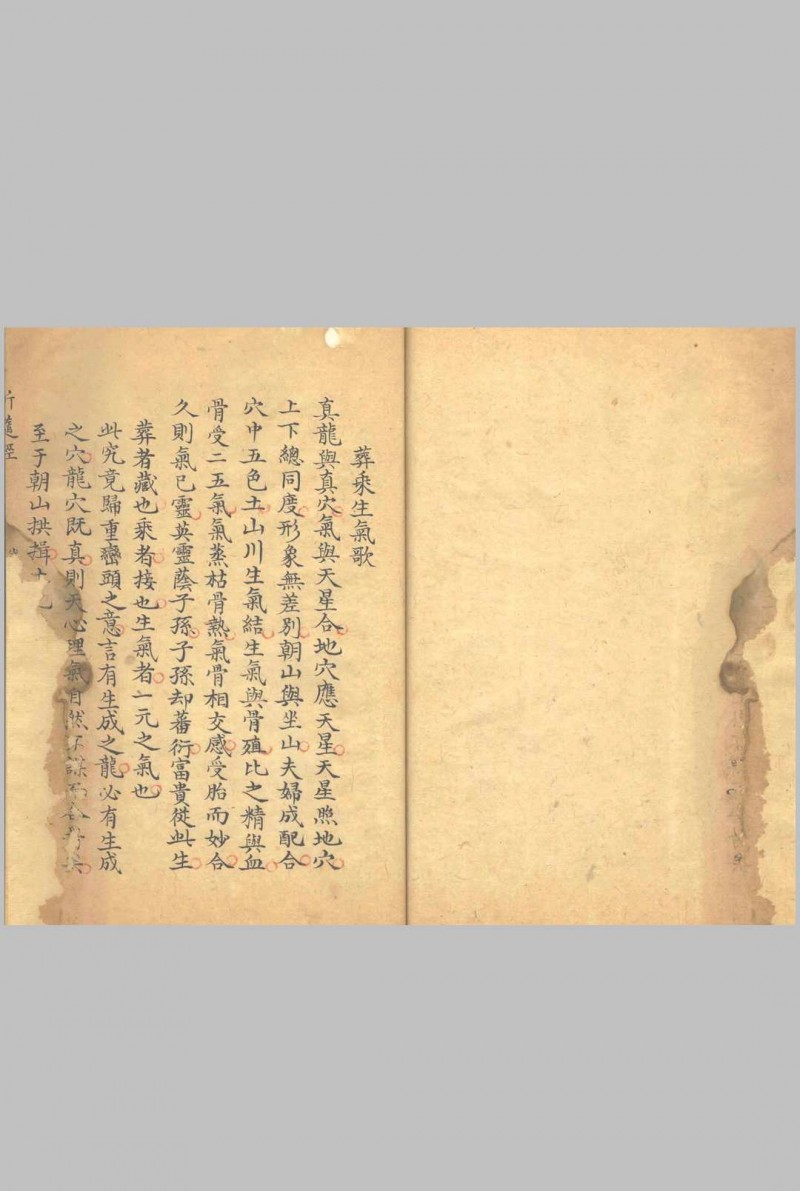 葬乘生氣歌
真龍與真穴氣與天星合地穴應天星天星照地穴
上下總同度形象無差別朝山與坐山夫婦成配合
穴中五色土山川生氣結生氣與骨殖比之精與血
骨受二五氣氣蒸枯骨熱氣骨相交感受胎而妙合
久則氣已靈英靈蔭子孫子孫却蕃衍富貴從此生
葬者藏也乘者接也生氣者一元之氣也
此究竟歸重巒頭之意言有生成之龍必有生成
之穴龍穴既真則天心理氣自然不謀而合
至于朝山拱揖